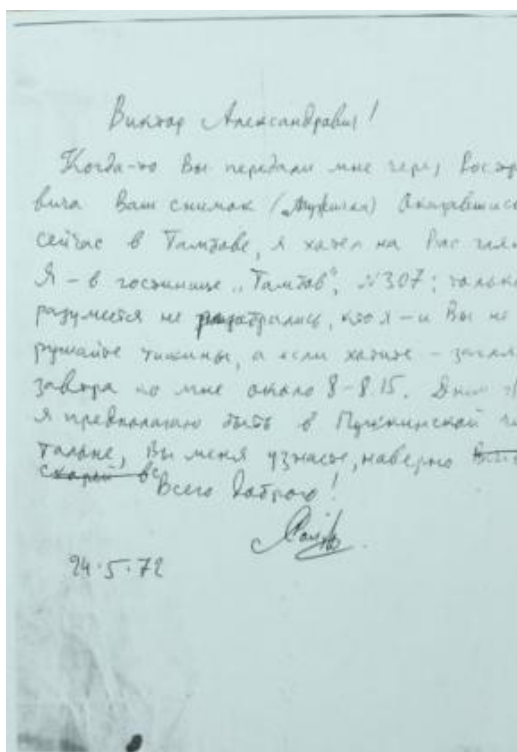 Виктор Александрович!
Когда-то Вы передали мне через Востр
вича Ваш снимок (Мужики) Оказавшись
сейчас в Тамбове, я хотел на Вас глян
Я – в гостинице „Тамбов“, №307; только
разумеется не разобрались, кто я – и Вы не
рушайте тишины, а если хотите –
завтра ко мне около 8–8.15. Днём
я предполагаю быть в Пушкинской чи
тальне, Вы меня узнаете, наверно
скорей вс
Всего доброго!
24·5·72